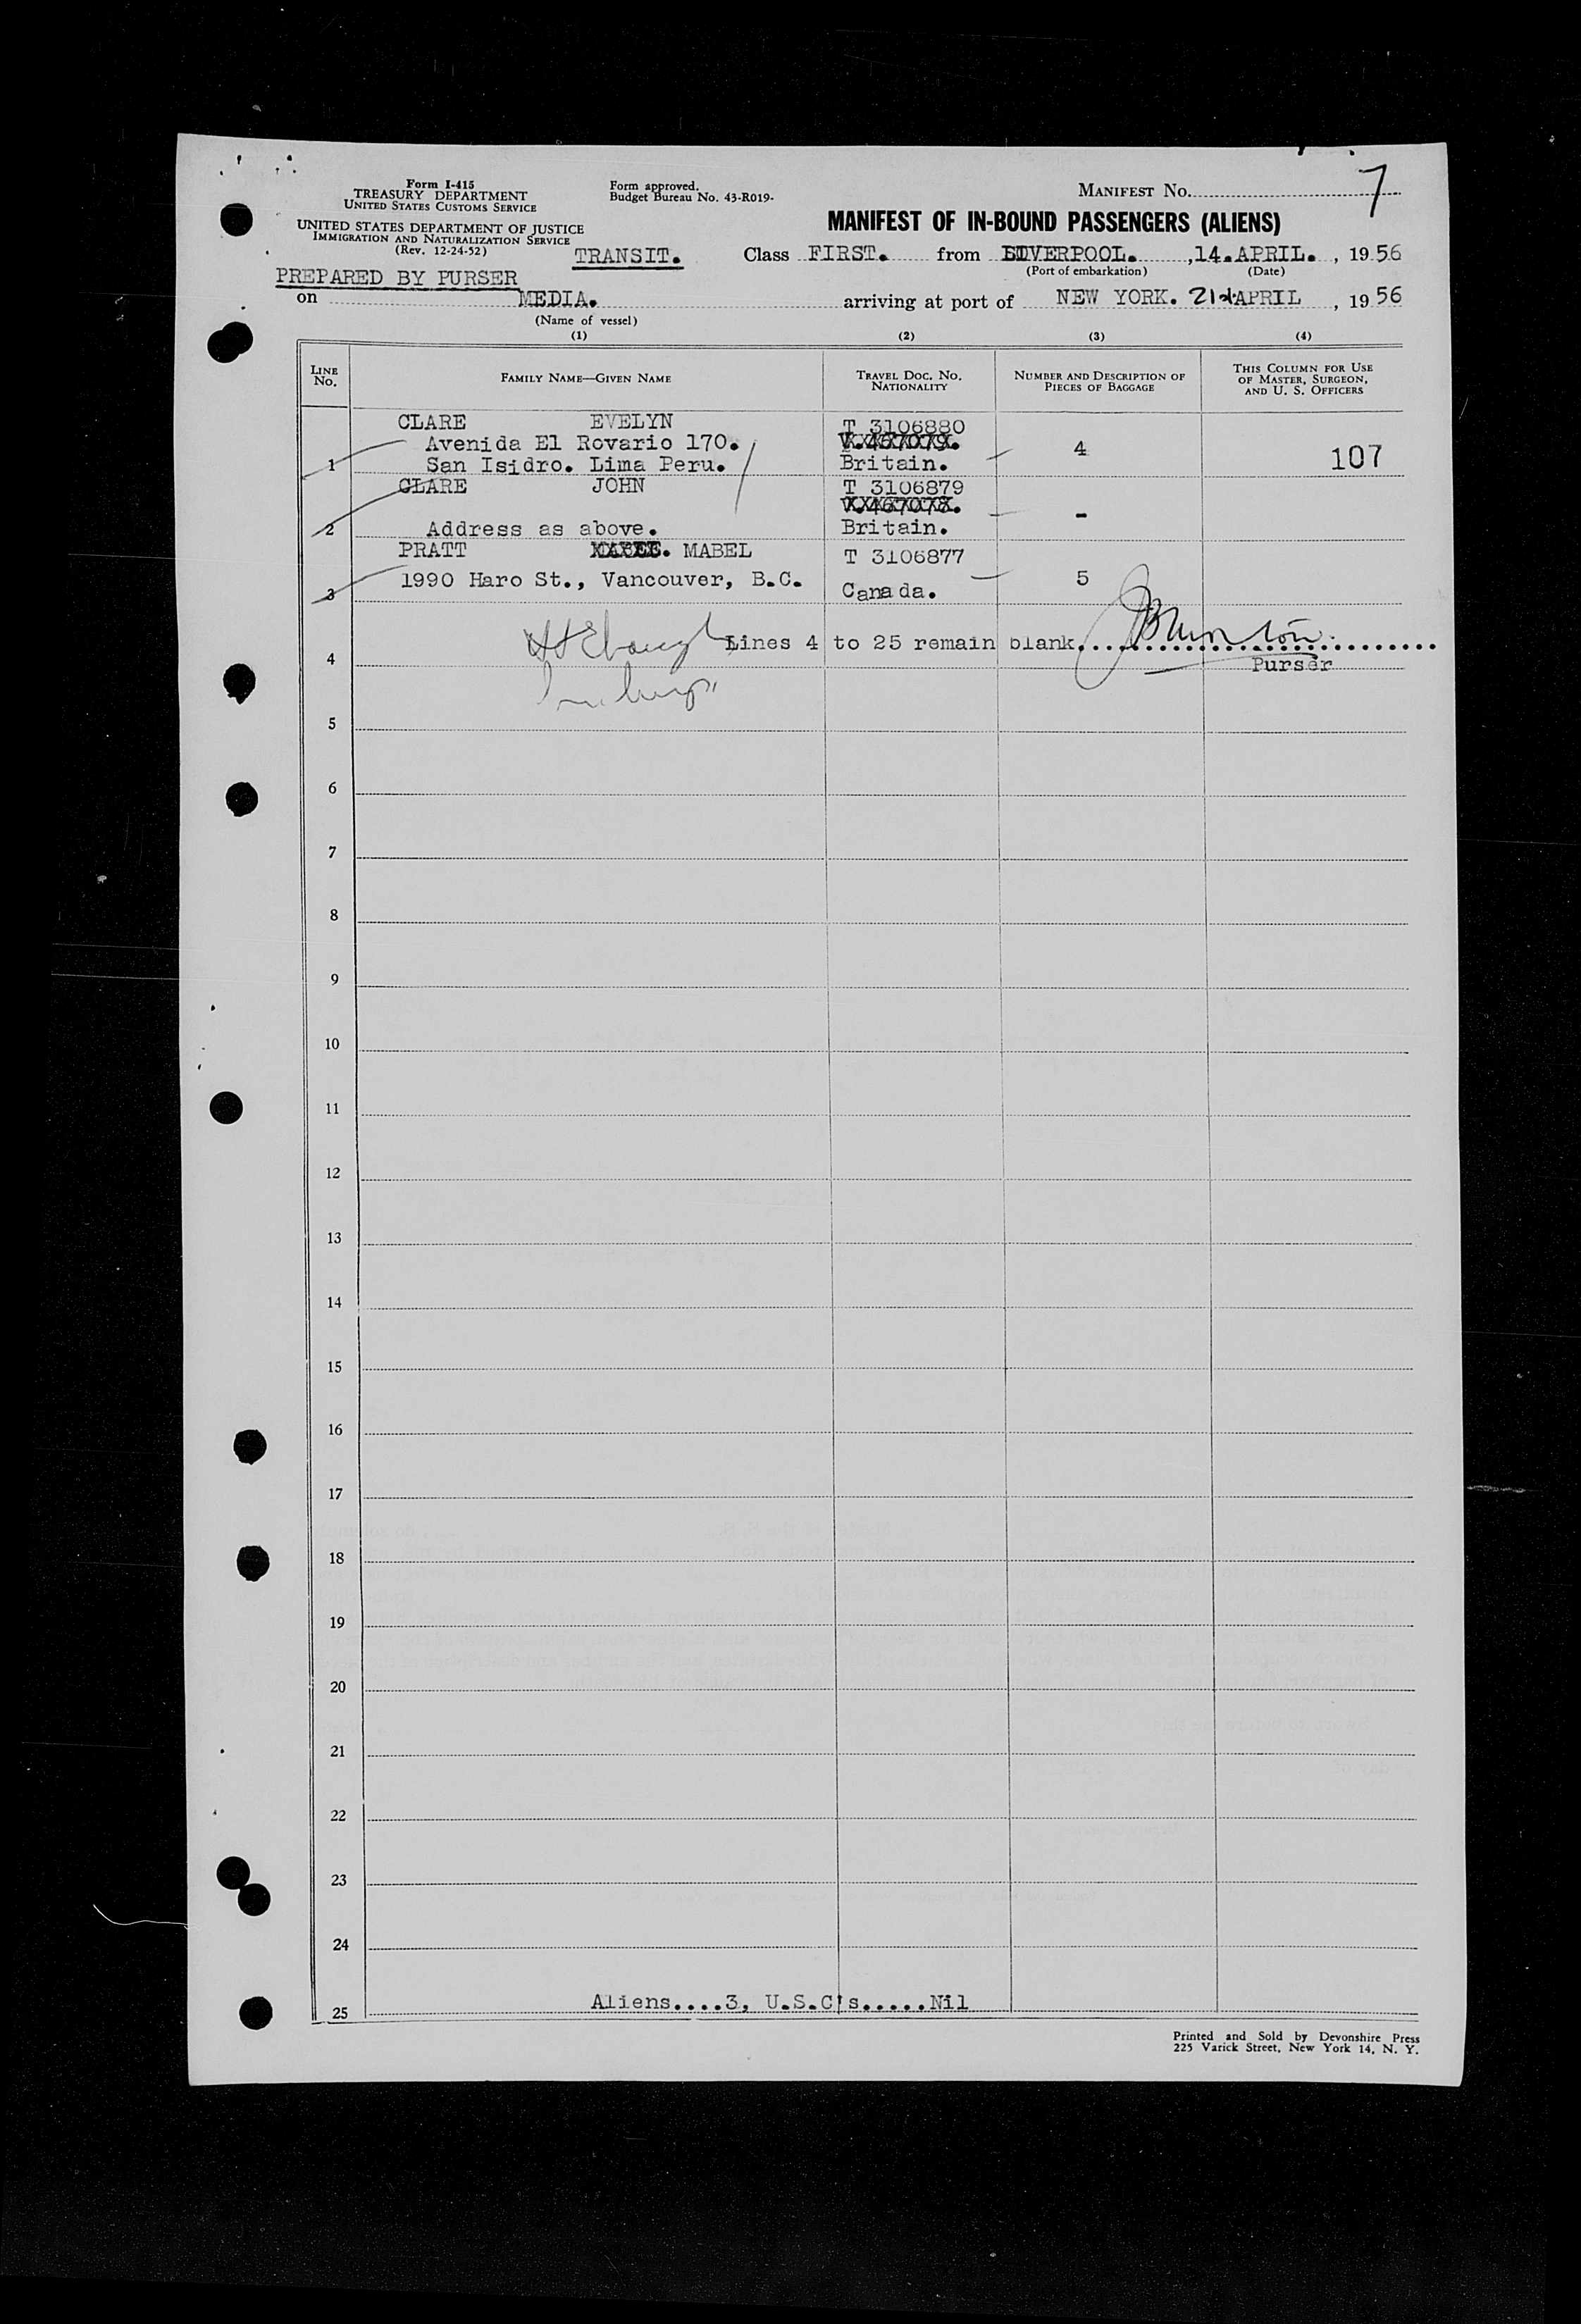 Form I-415
TREASURY DEPARTMENT
UNITED STATES CUSTOMS SERVICE
UNITED STATES DEPARTMENT OF JUSTICE
IMMIGRATION AND NATURALIZATION SERVICE
(Rev. 12-24-52)
Form approved.
Budget Bureau No. 43-R019-
MANIFEST NO. 7
MANIFEST OF IN-BOUND PASSENGERS (ALIENS)
TRANSIT. Class FIRST. from LIVERPOOL. ,14.APRIL. , 1956
(Port of embarkation) (Date)
PREPARED BY PURSER
on MEDIA. arriving at port of NEW YORK. 21st APRIL , 1956
(Name of vessel)
(1) (2) (3) (4)
LINE NO. FAMILY NAME—GIVEN NAME TRAVEL DOC. NO. NATIONALITY NUMBER AND DESCRIPTION OF PIECES OF BAGGAGE THIS COLUMN FOR USE OF MASTER, SURGEON, AND U. S. OFFICERS
CLARE EVELYN T 3106880
Avenida El Rovario 170.
1 San Isidro. Lima Peru. Britain. 4 107
CLARE JOHN T 3106879
2 Address as above. Britain. -
PRATT MABEL T 3106877
3 1990 Haro St., Vancouver, B.C. Canada. 5
Lines 4 to 25 remain blank
4 Purser
5
6
7
8
9
10
11
12
13
14
15
16
17
18
19
20
21
22
23
24
25 Aliens....3, U.S.C's.....Nil
Printed and Sold by Devonshire Press
225 Varick Street, New York 14, N. Y.